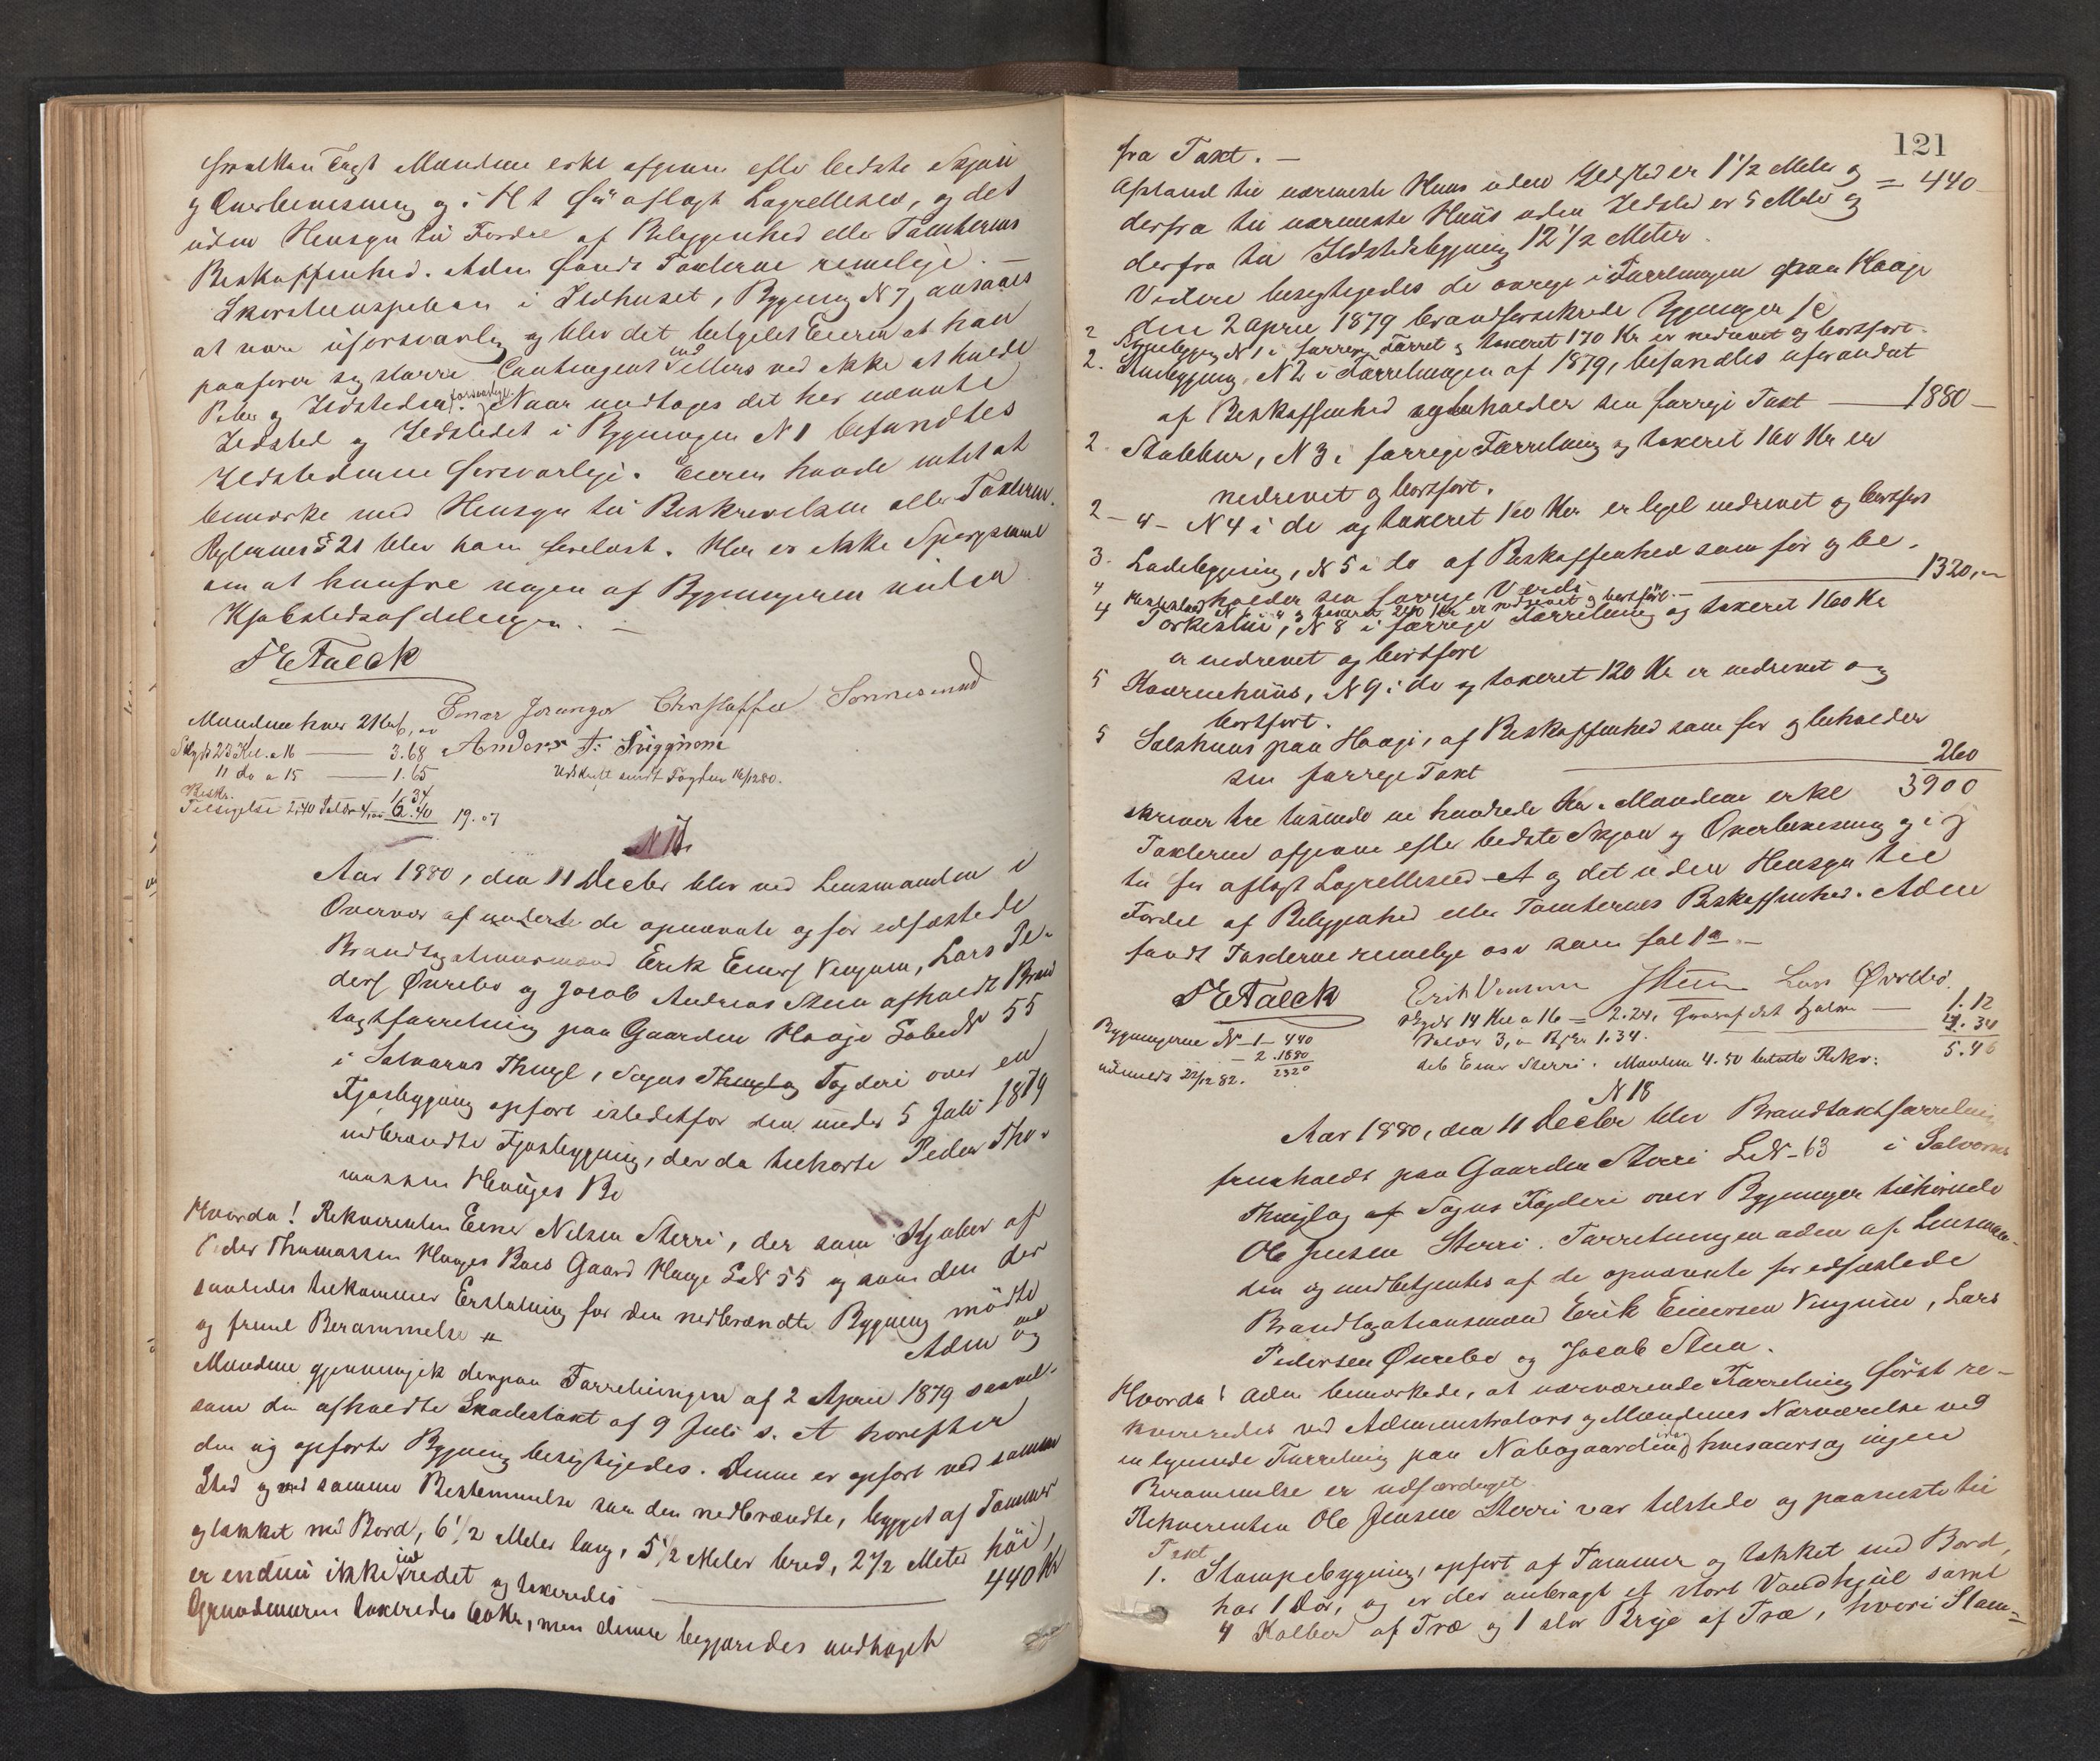 Taxt Mændene erkl afgivne efter bedste Skjøn
og Overbeviisning og i Kl t før aflagt Lagrettesed, og det
uden Hensyn til Fordel af Beliggenhed eller Tomternes
Beskaffenhed. Adm fandt Taxterne rimelige. —
Skorsteenspiben i Ildhuset, Bygning N 7, ansaaes
at være uforsvarlig og blev det betydet Eieren at han
paafører sig større Contingent ved ikke at holde
Piber og Ildsteder forsvarlige. Naar undtages det her nævnte
Ildsted og Ildstedet i Bygningen N 1 befandtes
Ildstederne forsvarlige. Eieren havde intet at
bemærke med Hensyn til Beskrivelsen eller Taxterne.
§ 21 blev ham forelæst. Her er ikke Spørgsmaal
om at henføre nogen af Bygningerne under
Kjøbstedsafdelingen. —
Falck
Einar Joranger Christoffer Sønnesand
Mændene hver 2 
Anders T.
Skyds 23 Kil. a 16 — 3.68
11 do a 15 — 1.65
Udskrift sendt Fogden 16/12 80.
Beskr. 1.34
Tilsigelse 2,40 6.40 19.07
N 17.
Aar 1880, den 11 Decbr blev ved Lensmanden i
Overvær af de opnævnte og før edfæstede
Brandtaxationsmænd Erik Eners Vinjum, Lars Pe-
ders Øvrebø og Jacob Andreas Steen afholdt Brand
taxtforretning paa Gaarden Hauge Løbenr 55
i Solvorns Thingl, Sogns Fogderi over en
Fjøsbygning opført istedetfor den under 5 Juli 1879
nedbrændte Fjøsbygning, der da tilhørte Peder Tho-
massen Hauges Bo
Hvorda! Rekvirenten Einer Nilsen Sterri, der som Kjøber af
Peder Thomassen Hauges Boes Gaard Hauge LN 55 og som den der
saaledes tilkommer Erstatning for den nedbrændte Bygning mødte
og freml Berammelse
Adm og
Mændene gjennemgik derpaa Forretningen af 2 April 1879 saavel-
som den afholdte Skadestaxt af 9 Juli s. A hvorefter
den ny opførte Bygning besigtigedes. Denne er opført ved samme
Sted og med samme Bestemmelse som den nedbrændte, bygget af Tømmer
og tækket med Bord, 6 1/2 Meter lang, 5 1/2 Meter bred, 2 1/2 Meter høi,
er endnu ikke indredet og taxeredes — 440 Kr
Grundmuren taxeredes 60 Kr, men denne begjæredes undtaget
121
fra Taxt. —
Afstand til nærmeste Huus uden Ildsted er 1 1/2 Meter og = 440 —
derfra til nærmeste Huus uden Ildsted er 5 Meter og
derfra til Ildstedsbygning 12 1/2 Meter.
Videre besigtigedes de øvrige i Forretningen paa Hauge
den 2 April 1879 brandforsikrede Bygninger
2 N 1 i forrige Forret og taxeret 170 Kr er nedrevet og bortført.
2. Stuebygning, N 2 i Forretningen af 1879, befandtes uforandret
af Beskaffenhed og beholder sin forrige Taxt — 1880 —
2. Stabbur, N 3 i forrige Forretning og taxeret 160 Kr er
nedrevet og bortført.
2 — " — N 4 i do og taxeret 160 Kr er ligel nedrevet og bortført
3. Ladebygning, N 5 i do af Beskaffenhed som før og be-
holder sin forrige Værdi — 1320,—
4 og taxeret 240 Kr er nedrevet og bortført. —
4 Tørkestue, N 8 i forrige Forretning og taxeret 160 Kr
er nedrevet og bortført
5 Kværnehuus, N 9 i do og taxeret 120 Kr er nedrevet og
bortført.
5 Sælshuus paa Hauge, af Beskaffenhed som før og beholder
sin forrige Taxt — 260
3900
skriver tre tusinde ni hundrede Kr. Mændene erkl
Taxterne afgivne efter bedste Skjøn og Overbeviisning og i
til før aflagt Lagrettesed og det uden Hensyn til
Fordel af Beliggenhed eller Tomternes Beskaffenhed. Adm
fandt Taxterne rimelige osv som fol 1 —
Falck
Erik Vinjum JSteen Lars Øvrebø.
Skyds 14 Kil a 16 = 2.24, heraf det halve — 1.12
Bygningerne N — 1 — 440
3, 1.34. — 4.34
— 2. 1880
2320
5.46
22/12 82.
deb Einer Sterri. Mændene 4.50 betalte Rekv:
N 18
Aar 1880, den 11 Decbr blev Brandtaxtforretning
fremholdt paa Gaarden Sterri LN — 63 i Solvorns
Thinglag af Sogns Fogderi over Bygninger tilhørende
Ole Jensen Sterri. Forretningen adm af Lensman-
den og medbetjentes af de opnævnte før edfæstede
Brandtaxationsmænd Erik Einersen Vinjum, Lars
Pedersen Øvrebø og Jacob Steen.
Hvorda! Adm bemærkede, at nærværende Forretning først re-
kvireredes ved Administrators og Mændenes Nærværelse ved
en lignende Forretning paa Nabogaarden idag hvesaarsag ingen
Berammelse er udfærdiget.
Rekvirenten Ole Jensen Sterri var tilstede og paaviste til
Taxt
1. Stampebygning, opført af Tømmer og tækket med Bord,
har 1 Dør, og er der anbragt et stort Vandhjul samt
4 Kolber af Træ og 1 stor Brye af Træ, hvori Stam=